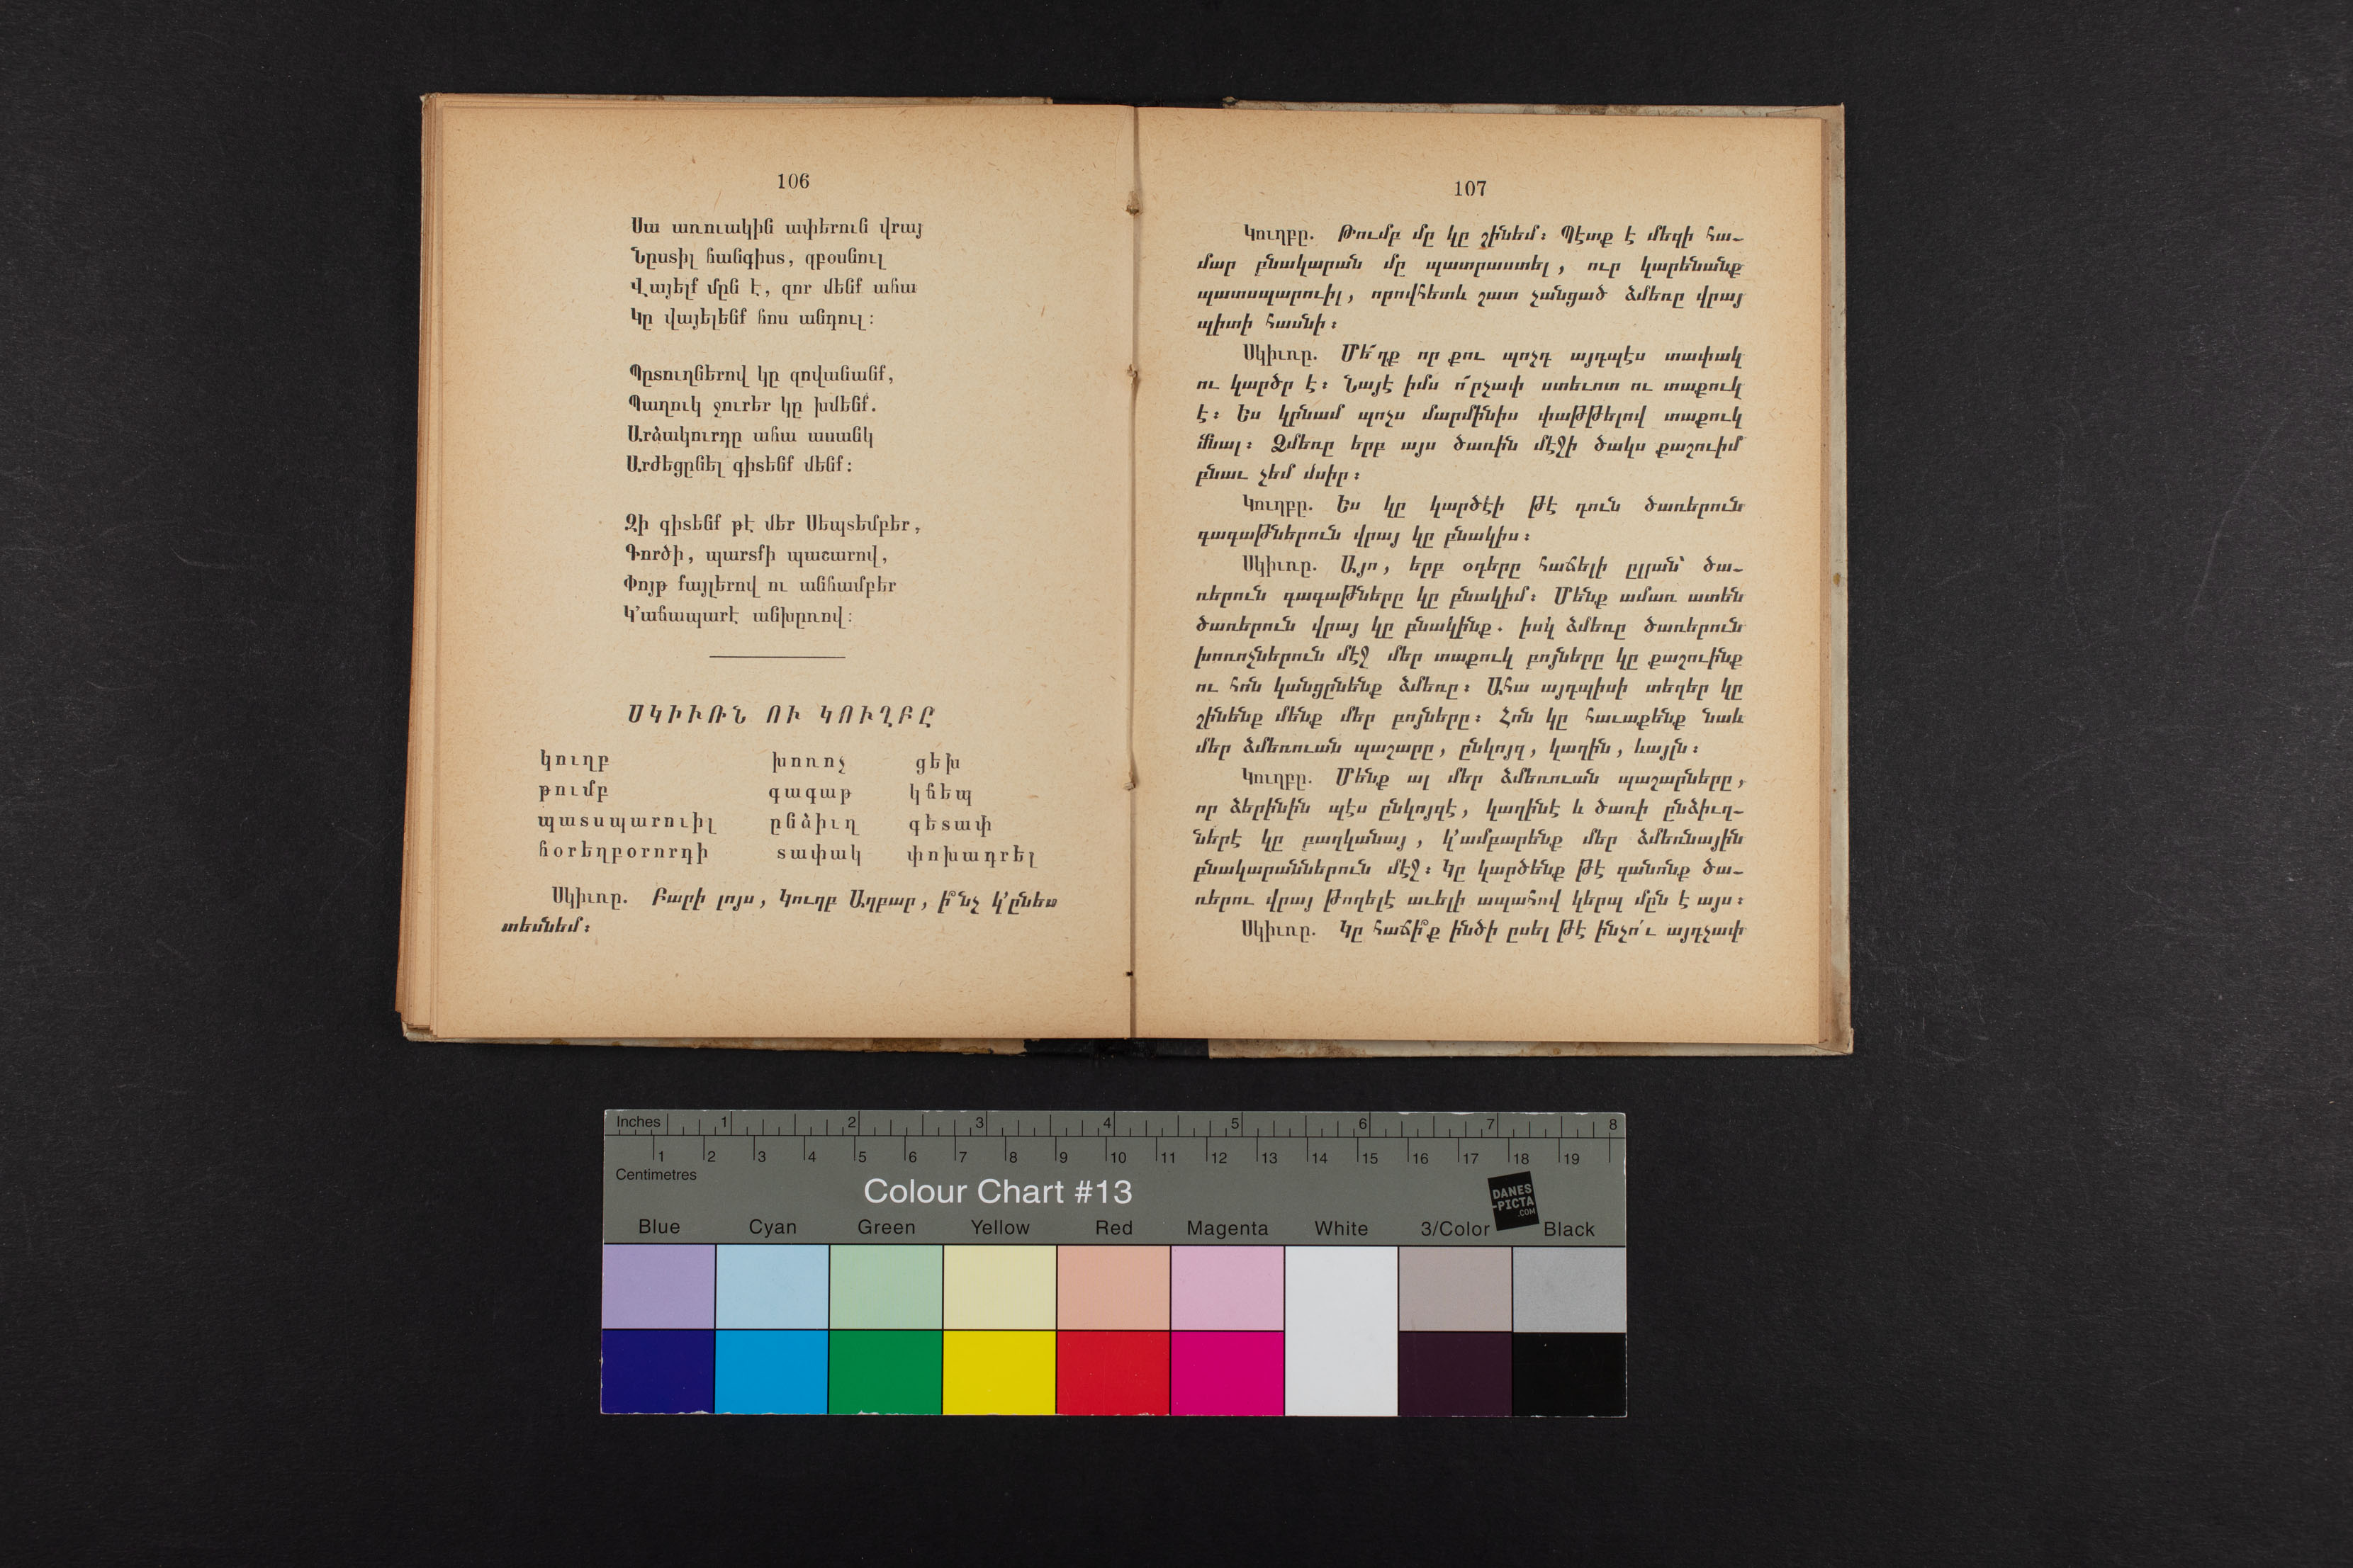 106
Սա առուակին ափերուն վրայ
Նըստիլ հանգիստ, զբօսնուլ
Վայելք մըն է, զոր մենք ահա
Կը վայելենք հոս անդուլ։
Պըտուղներով կը զովանանք,
Պաղուկ ջուրեր կը խմենք.
Արձակուրդը ահա ասանկ
Արժեցընել գիտենք մենք։
Զի գիտենք թէ մեր Սեպտեմբեր,
Գործի, պարտքի պաշարով,
Փոյթ քայլերով ու անհամբեր
Կ՚ահապարէ անխըռով։
ՍԿԻՒՌՆ ՈՒ ԿՈՒՂԲԸ
կուղբ խոռոչ ցեխ
թումբ գագաթ կճեպ
պատսպարուիլ ընձիւղ գետափ
հօրեղբօրորդի տափակ փոխադրել
Սկիւռը. Բարի լոյս, Կուղբ Աղբար, ի՞նչ կ՚ընես
տեսնեմ։
107
Կուղբը. Թումբ մը կը շինեմ։ Պէտք է մեզի հա-
մար բնակարան մը պատրաստել, ուր կարենանք
պատսպարուիլ, որովհետև շատ չանցած ձմեռը վրայ
պիտի հասնի։
Սկիւռը. Մե՜ղք որ քու պոչդ այդպէս տափակ
ու կարծր է։ Նայէ իմս ո՜րչափ ստեւոտ ու տաքուկ
է։ Ես կրնամ պոչս մարմինիս փաթթելով տաքուկ
մնալ։ Ձմեռը երբ այս ծառին մէջի ծակս քաշուիմ
բնաւ չեմ մսիր։
Կուղբը. Ես կը կարծէի թէ դուն ծառերուն
գագաթներուն վրայ կը բնակիս։
Սկիւռը. Այո, երբ օդերը հաճելի ըլլան՝ ծա-
ռերուն գագաթները կը բնակիմ։ Մենք ամառ ատեն
ծառերուն վրայ կը բնակինք. իսկ ձմեռը ծառերուն
խոռոչներուն մէջ մեր տաքուկ բոյները կը քաշուինք
ու հոն կանցընենք ձմեռը։ Ահա այդպիսի տեղեր կը
շինենք մենք մեր բոյները։ Հոն կը հաւաքենք նաև
մեր ձմեռուան պաշարը, ընկոյզ, կաղին, ևայլն։
Կուղբը. Մենք ալ մեր ձմեռուան պաշարները,
որ ձերինին պէս ընկոյզէ, կաղինէ և ծառի ընձիւղ-
ներէ կը բաղկանայ, կ՚ամբարենք մեր ձմեռնային
բնակարաններուն մէջ։ Կը կարծենք թէ զանոնք ծա-
ռերու վրայ թողելէ աւելի ապահով կերպ մըն է այս։
Սկիւռը. Կը հաճի՞ք ինծի ըսել թէ ինչո՛ւ այդչափ
Inches 1 2 3 4 5 6 7 8
1 2 3 4 5 6 7 8 9 10 11 12 13 14 15 16 17 18 19
Centimetres
Colour Chart #13
DANES
-PICTA
.COM
Blue Cyan Green Yellow Red Magenta White 3/Color Black